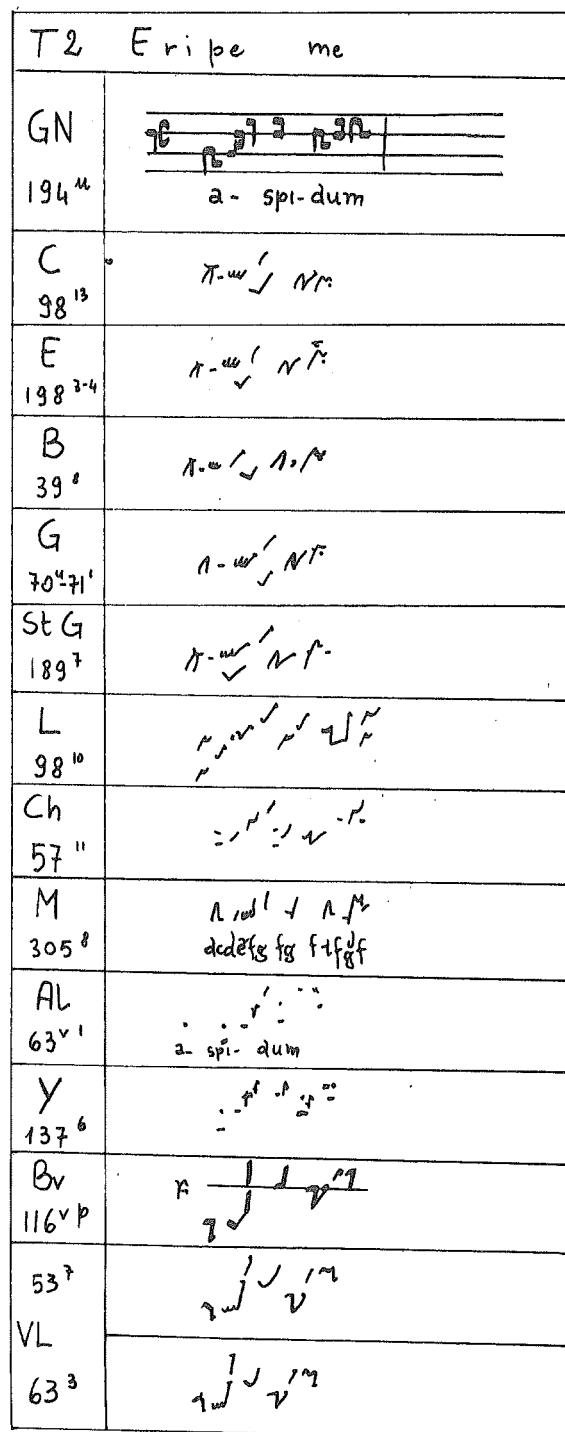 T2 Eripe me
GN
194⁴
a- spi-dum
C
98¹³
E
198³⁻⁴
B
39⁸
G
70⁴-71¹
St G
189⁷
L
98¹⁰
Ch
57¹¹
M
305⁸
fg
AL
63ᵛ ¹
a- spi- dum
Y
137⁶
Bv
116ᵛ ᵖ
53⁷
VL
63³